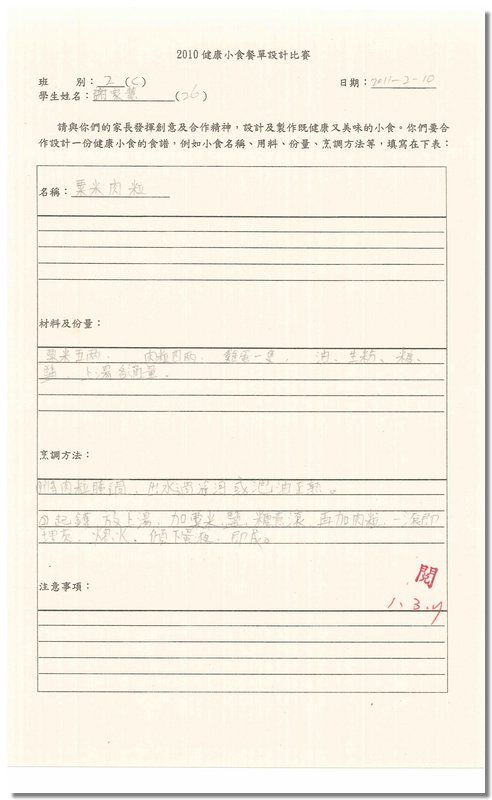 2010 健康小食餐單設計比賽
班　　別：2 (C)　　日期：2011-2-10
學生姓名：(26)
請與你們的家長發揮創意及合作精神，設計及製作既健康又美味的小食。你們要合
作設計一份健康小食的食譜，例如小食名稱、用料、份量、烹調方法等，填寫在下表：
名稱：粟米肉粒
材料及份量：
粟米五兩， 肉粒四兩， 雞蛋一隻， 油、生粉、糖、
鹽 上湯各適量。
烹調方法：
肉粒醃過，出水過冷河或泡油至熟。
②起鑊，放上湯，加粟米，鹽，糖煮滾，再加肉粒，一滾即
埋芡，熄火，傾下蛋液，即成。
注意事項：
閱
1.3.4